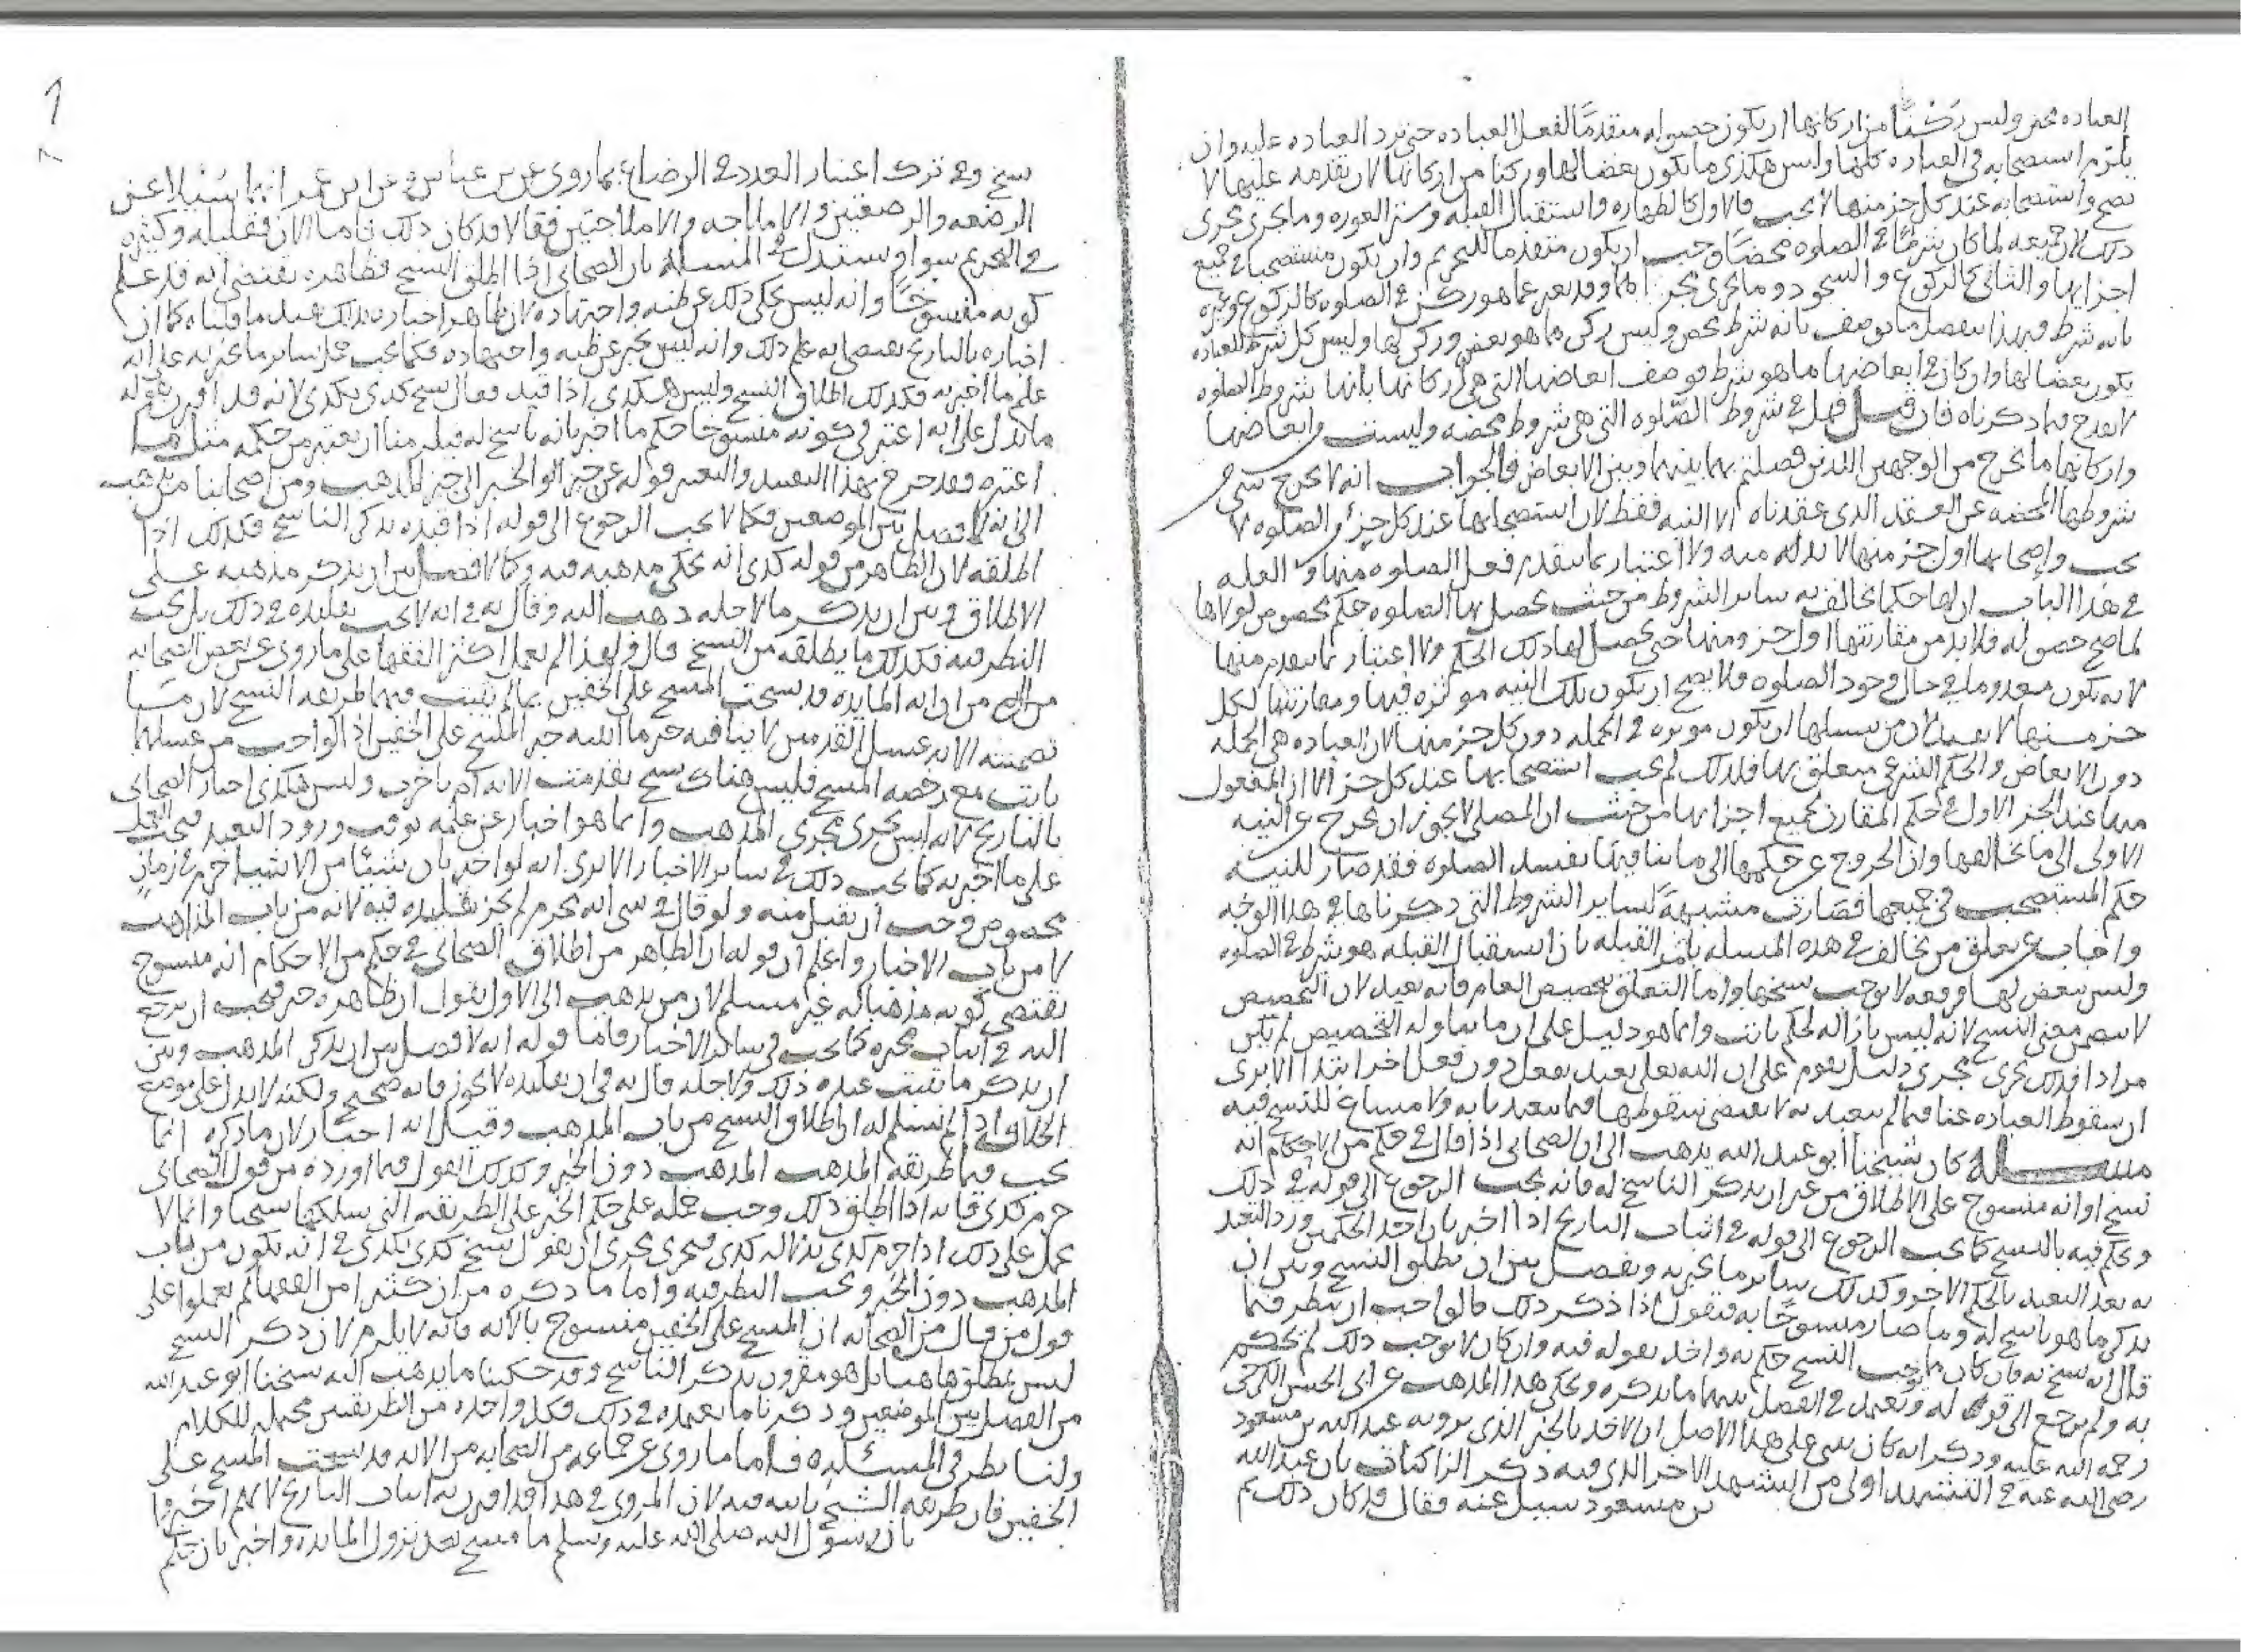 العباده محض وليس ركنًا من اركانها ان يكون حصوله متقدمًا لفعل العباده حتى ترد العباده عليه وان
يلزم استصحابه في العباده كلها وليس هكذى ما يكون بعضا لها وركنا من اركانها لان تقدمه عليها لا
يصح واستصحابه عند كل جز منها لا يجب فالاول كالطهاره واستقبال القبله وستر العوره وما يجرى مجرى
ذلك لان جميعه لما كان شرطًا في الصلوه محضًا وجب ان يكون متقدما للتحريم وان يكون مستصحبا في جميع
اجزايها والثانى كالركوع والسجود وما يجرى مجراهما وقد يعبر عما هو ركن في الصلوه كالركوع وغيره
بانه شرط فبهذا ينفصل ما يوصف بانه شرط محض وليس بركن مما هو بعض وركن لها وليس كل شرط للعباده
يكون بعضا لها وان كان في ابعاضها ما هو شرط فوصف ابعاضها التى هي اركانها بانها شروط الصلوه
لا يقدح فيما ذكرناه فان قيل فهل في شروط الصلوه التى هي شروط محضه وليست من ابعاضها
واركانها ما يخرج من الوجهين اللذين فصلتم بهما بينها وبين الابعاض فالجواب انه لا يخرج شى من
شروطها المحضه عن العقد الذى عقدناه الا النيه فقط لان استصحابها عند كل جز من الصلوه لا
يجب وإصحابها اول جز منها لا بد له منه ولا اعتبار بما يتقدم فعل الصلوه منها والعله
في هذا الباب ان لها حكما تخالف به ساير الشروط من حيث يحصل بها الصلوه حكم مخصوص لولاها
لما صح حصوله فلا بد من مقارنتها اول جزو منها حتى يحصل لها ذلك الحكم ولا اعتبار بما يتقدم منها
لانه يكون معدوما في حال وجود الصلوه فلا يصح ان يكون تلك النيه موثره فيها ومقارنتها لكل
جز منها لا يعتبر لان من سبيلها ان يكون موثره في الجمله دون كل جز منها لان العباده هي الجمله
دون الابعاض والحكم الشرعى متعلق بها فلذلك لم يجب استصحابها عند كل جز الا ان المفعول
منها عند الجز الاول في حكم المقارن لجميع اجزايها من حيث ان المصلى لا يجوز ان يخرج عن النيه
الاولى الى ما يخالفها وان الخروج عن حكمها الى ما ينافيها يفسد الصلوه فقد صار للنيه
حكم المستصحب في جميعها فصارت مشبهةً لساير الشروط التى ذكرناها في هذا الوجه
واجاب عن تعلق من يخالف في هذه المسله بامر القبله بان استقبال القبله هو شرط في الصلوه
وليس ببعض لها ورفعه لا يوجب نسخها واما التعلق بتخصيص العام فانه بعيد لان التخصيص
لا يتضمن معنى النسخ لانه ليس بازاله لحكم ثابت وانما هو دليل على ان ما يتناوله التخصيص لم يكن
مرادا فذلك يجرى مجرى دليل يقوم على ان الله تعالى يعبد بفعل دون فعل اخر ابتدا الا ترى
ان سقوط العباده عنا فيما لم نتعبد به لا يقتضى سقوطها فيما نتعبد نابه ولا مساغ للنسخ فيه
مسله كان شيخنا أبو عبد الله يذهب الى ان الصحابى اذا قال في حكم من الاحكام انه
نسخ او انه منسوخ على الاطلاق من غير ان يذكر الناسخ له فانه يجب الرجوع الى قوله في ذلك
ويحكم فيه بالنسخ كما يجب الرجوع الى قوله في اثبات التاريخ اذا اخبر بان احد الحكمين ورد التعبد
به بعد التعبد بالحكم الاخر وكذلك ساير ما يخبر به ويفصل بين ان يطلق النسخ وبين ان
يذكر ما هو ناسخ له وما صار منسوخًا به فيقول اذا ذكر ذلك فالواجب ان ينظر فيما
قال انه نسخ به فان كان مما يوجب النسخ حكم به واخذ بقوله فيه وان كان لا يوجب ذلك لم يحكم
به ولم يرجع الى قوله له ويعمل في الفصل بينهما ما يذكره ويحكى هذا المذهب عن ابى الحسن الكرخى
رحمه الله عليه وذكر انه كان يبنى على هذا الاصل ان الاخذ بالخبر الذى يرويه عبد الله بن مسعود
رضى الله عنه في التشهد اولى من التشهد الاخر الذى فيه ذكر الزاكيات بان عبد الله
بن مسعود سيل عنه فقال قد كان ذلك ثم
نسخ وفي ترك اعتبار العدد في الرضاع بما روى عن بن عباس وعن ابن عمر انهما سُئلا عن
الرضعه والرضعتين والاملاجه والاملاجتين فقالا قد كان ذلك فاما الان فقليله وكثيره
في التحريم سوا ويستدل في المسله بان الصحابى اذا اطلق النسخ فظاهره يقتضى انه قد علم
كونه منسوخًا وانه ليس يحكى ذلك عن ظنه واجتهاده لان ظاهر اخباره بذلك يفيد ما قلناه كما ان
اخباره بالتاريخ يقتضى انه علم ذلك وانه ليس يخبر عن ظنه واجتهاده فكما يجب حمل ساير ما يخبر به على انه
علم ما اخبر به فكذلك اطلاق النسخ وليس هكذى اذا قيد فقال نسخ كذى بكذى لانه قد اقترن بقوله
ما يدل على انه اعتبر في كونه منسوخا حكم ما اخبر بانه ناسخ له فيلزمنا ان نعتبر من حكمه مثل ما
اعتبره وقد خرج بهذا التقييد والتفسير قوله عن جيز الخبر الى حيز المذهب ومن اصحابنا من يذهب
الى انه لا فصل بين الموضعين فكما لا يجب الرجوع الى قوله اذا قيده بذكر الناسخ فكذلك اذا
اطلقه لان الظاهر من قوله كذى انه يحكى مذهبه فيه وكما لا فصل بين ان يذكر مذهبه على
الاطلاق وبين ان يذكر ما لاجله ذهب اليه وقال به في انه لا يجب تقليده في ذلك بل يجب
النظر فيه فكذلك ما يطلقه من النسخ قال ولهذا لم يعمل اكثر الفقها على ما روى عن بعض الصحابه
من ان ايه المايده قد نسخت المسح على الخفين بما لم يثبت فيهما طريقه النسخ لان ما
تضمنته الايه غسل القدمين لا ينافيه خبر المسح على الخفين اذ الواجب من غسلهما
ثابت مع رخصه المسح فليس هناك نسخ تقدمت الايه ام تاخرت وليس هكذى اخبار الصحابى
بالتاريخ لانه ليس يجرى مجرى المذهب وانما هو اخبار عن علمه بوقت ورود التعبد فيجب العمل
على ما اخبر به كما يجب ذلك في ساير الاخبار الا ترى انه لو اخبر بان شيئًا من الاشيا حرم في زمان
مخصوص وجب ان يقبل منه ولو قال في شى انه يحرم لم يجز تقليده فيه لانه من باب المذاهب
لا من باب الاخبار واعلم ان قوله ان الظاهر من اطلاق الصحابى في حكم من الاحكام انه منسوخ
يقتضى كونه مذهبا له غير مسلم لان من يذهب الى الاول يقول ان ظاهره خبر فيجب ان يرجع
اليه في اثبات مخبره كما يجب في ساير الاخبار فاما قوله انه لا فصل بين ان يذكر المذهب وبين
ان يذكر ما يثبت عنده ذلك ولاجله قال به في ان تقليده لا يجوز فانه صحيح ولكنه لا يدل على موضع
الخلاف اذا لم نسلم له ان اطلاق النسخ من باب المذهب وقيل انه اخبار لان ما ذكره انما
يجب فيما طريقه المذهب دون الخبر وكذلك القول فيما اورده من قول الصحابى
حرم كذى فانه اذا اطلق ذلك وجب حمله على حكم الخبر على الطريقه التى يسلكها شيخنا وانما لا
يحمل على ذلك اذا حرم كذى بدلاله كذى فيجرى مجرى ان يقول نسخ كذى بكذى في انه يكون من باب
المذهب دون الخبر ويجب النظر فيه واما ما ذكره من ان كثيرا من الفقها لم يعملوا على
قول من قال من الصحابه ان المسح على الخفين منسوخ بالايه فانه لا يلزم لان ذكر النسخ
ليس بمطلق هاهنا بل هو مقرون بذكر الناسخ وقد حكينا ما يذهب اليه شيخنا ابو عبد الله
من الفصل بين الموضعين وذكرنا ما يعتمده في ذلك فكل واحده من الطريقتين محتمله للكلام
ولنا نظر في المسئلة فاما ما روى عن جماعه من الصحابه من الايه قد نسخت المسح على
الخفين فان طريقه النسخ ثابته فيه لان المروى في هذا قد اقترن به اثبات التاريخ لانهم اخبروا
بان رسول الله صلى الله عليه وسلم ما مسح بعد نزول المايده واخبر بان حكم